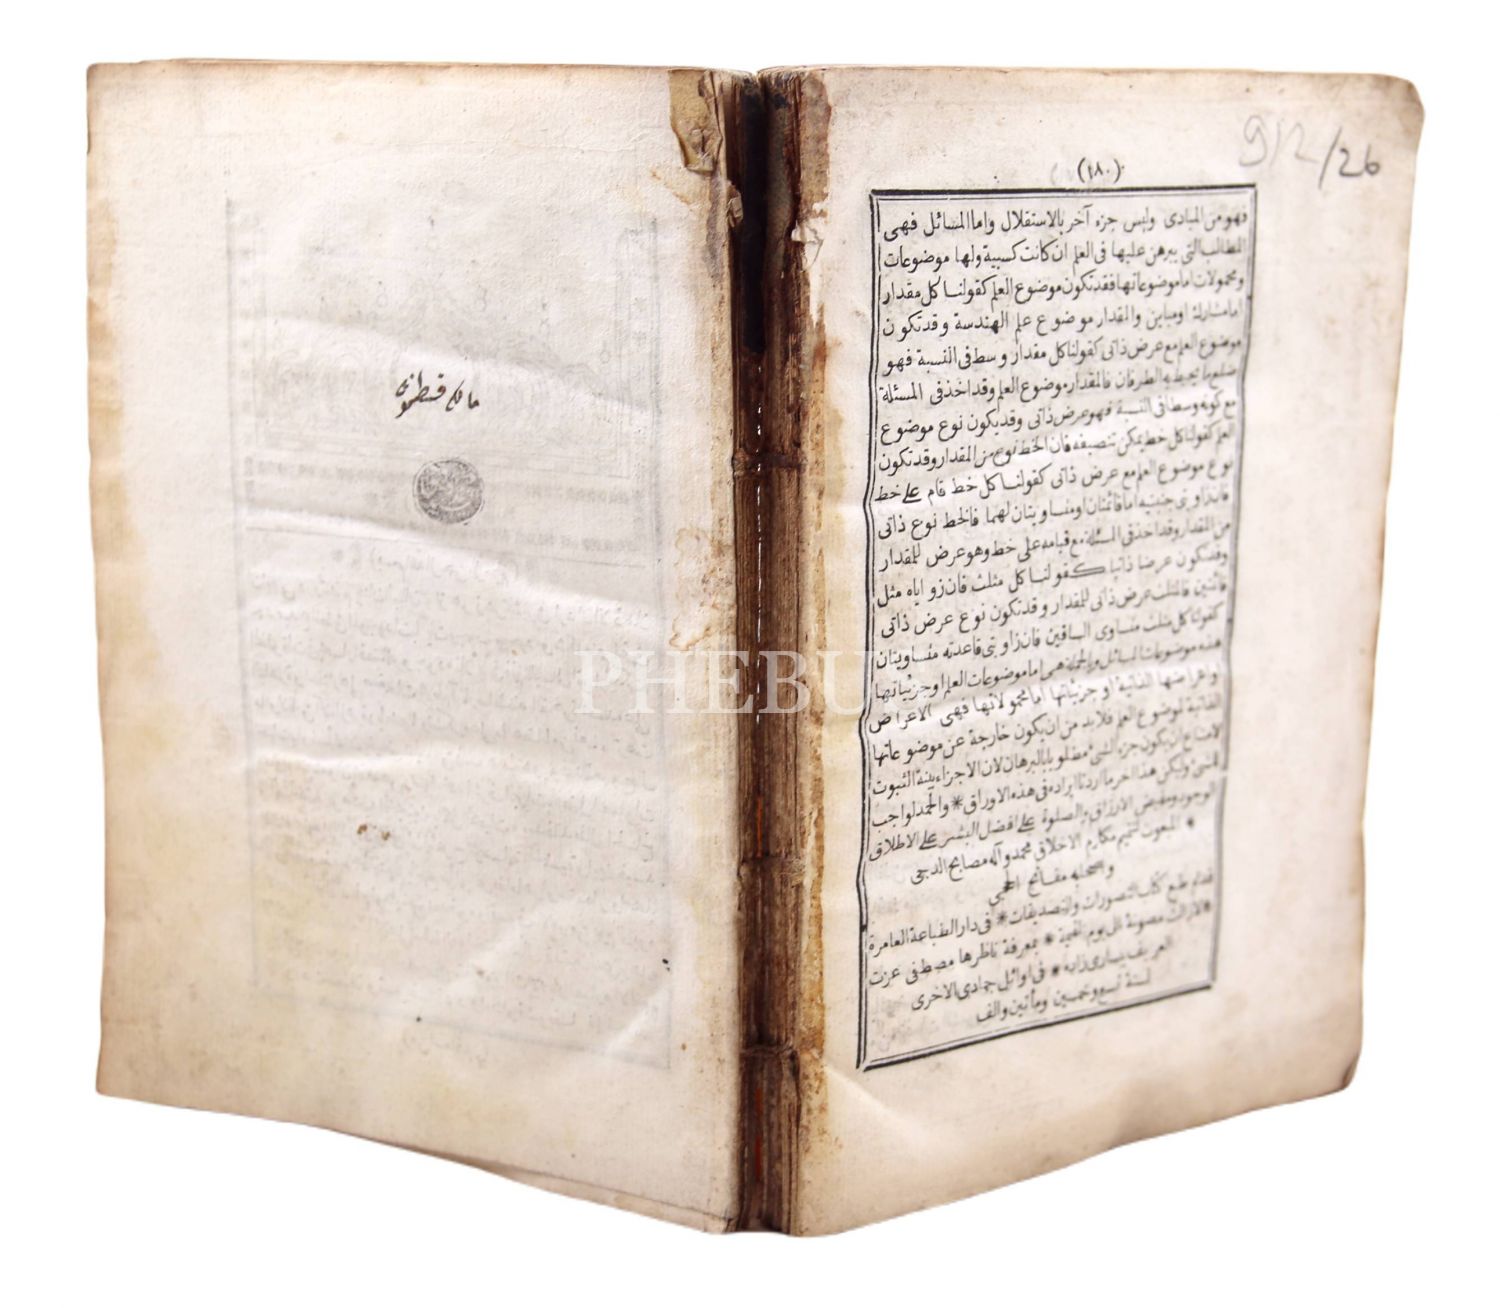 912/26
(١٨٠)
فهو من المبادى وليس جزء آخر بالاستقلال واما المسائل فهى
المطالب التى يبرهن عليها فى العلم ان كانت كسبية ولها موضوعات
ومحمولات اما موضوعاتها فقد تكون موضوع العلم كقولنا كل مقدار
اما مشارك او مباين والمقدار موضوع علم الهندسة وقد تكون
موضوع العلم مع عرض ذاتى كقولنا كل مقدار وسط فى النسبة فهو
ضلع ما يحيط به الطرفان فالمقدار موضوع العلم وقد اخذ فى المسئلة
مع كونه وسطا فى النسبة فهو عرض ذاتى وقد يكون نوع موضوع
العلم كقولنا كل خط يمكن تنصيفه فان الخط نوع من المقدار وقد تكون
نوع موضوع العلم مع عرض ذاتى كقولنا كل خط قام على خط
فان زاويتى جنبيه اما قائمتان او متساويتان لهما فالخط نوع ذاتى
من المقدار وقد اخذ فى المسئلة مع قيامه على خط وهو عرض للمقدار
وقد تكون عرضا ذاتيا كقولنا كل مثلث فان زواياه مثل
قائمتين فالمثلث عرض ذاتى للمقدار وقد تكون نوع عرض ذاتى
كقولنا كل مثلث متساوى الساقين فان زاويتى قاعدته متساويتان
هذه موضوعات المسائل وبالجملة هى اما موضوعات العلم او جزئياتها
او اعراضها الذاتية او جزئياتها اما محمولاتها فهى الاعراض
الذاتية لموضوع العلم فلا بد من ان يكون خارجة عن موضوعاتها
لامتناع ان يكون جزء الشئ مطلوبا بالبرهان لان الاجزاء بينة الثبوت
للشئ وليكن هذا آخر ما اردنا ايراده فى هذه الاوراق * والحمد لواجب
الوجود ومفيض الارزاق والصلوة على افضل البشر على الاطلاق
* المبعوث لتتميم مكارم الاخلاق محمد وآله مصابيح الدجى
واصحابه مفاتيح الحجى
قد تم طبع كتاب التصورات والتصديقات * فى دار الطباعة العامرة
* لازالت مصونة الى يوم القيمة * بمعرفة ناظرها مصطفى عزت
العريف بيسارى زاده * فى اوائل جمادى الاخرى
لسنة تسع وخمسين ومأتين والف
PHEBU